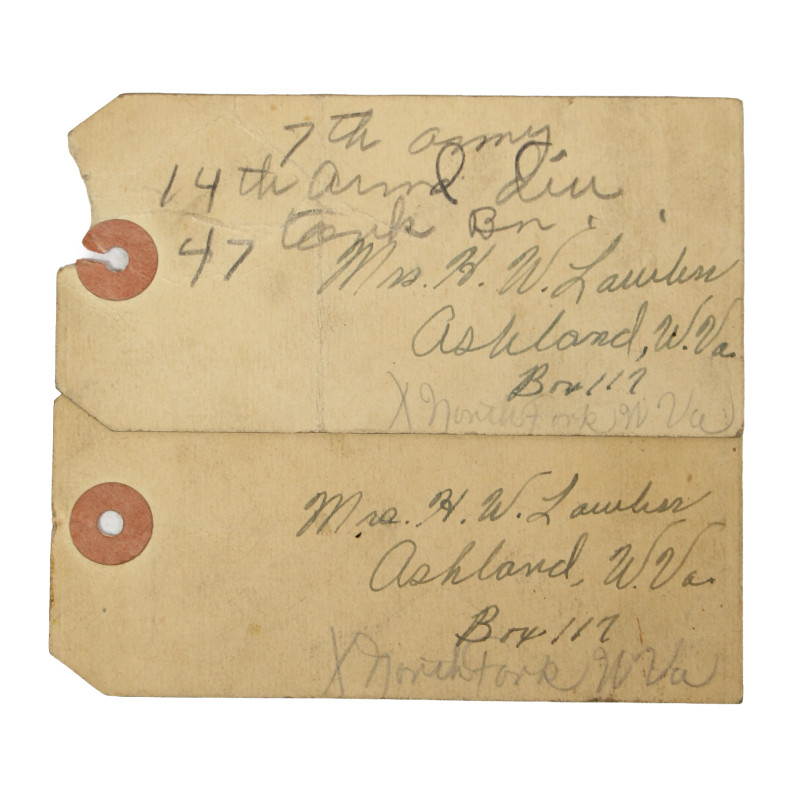 7th army
14th Armd div
47 tank Bn.
Mrs. H. W. Lawber
Ashland, W. Va.
Box 117
X North fork W Va
Mrs. H. W. Lawber
Ashland, W. Va.
Box 117
X North fork W. Va